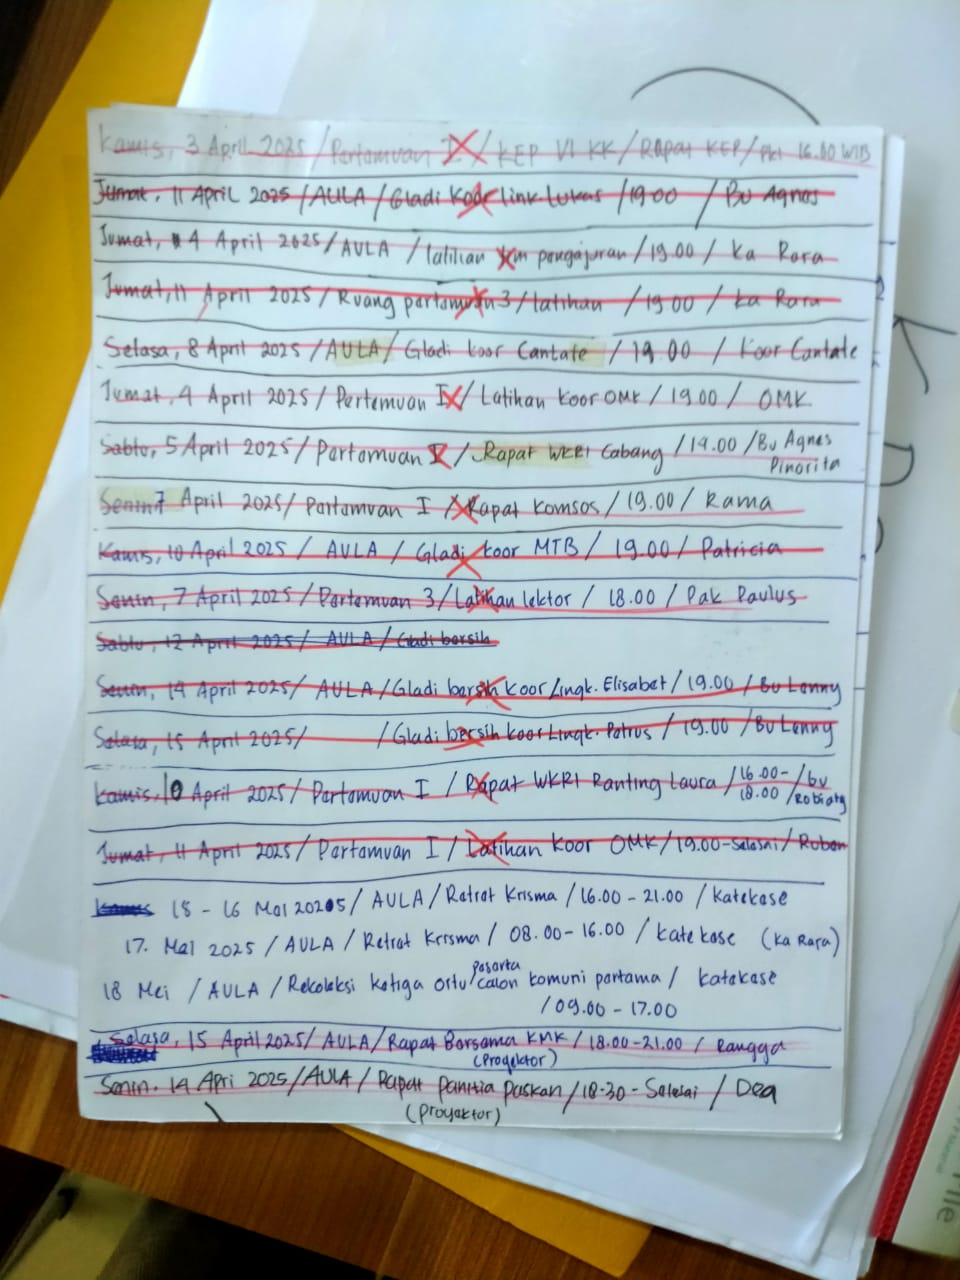 Kamis, 3 April 2025 / Pertemuan I / KEP VI KK / Rapat KEP / Pkl 16.00 WIB
Jumat, 11 April 2025 / AULA / Gladi Koor link. Lukas / 19.00 / Bu Agnes
Jumat, 4 April 2025 / AULA / latihan pengajuran / 19.00 / Ka Rara
Jumat, 11 April 2025 / Ruang pertemuan 3 / latihan / 19.00 / Ka Rara
Selasa, 8 April 2025 / AULA / Gladi koor Cantate / 19.00 / Koor Cantate
Jumat, 4 April 2025 / Pertemuan I / Latihan koor OMK / 19.00 / OMK
Sabtu, 5 April 2025 / Pertemuan / Rapat WKRI Cabang / 14.00 / Bu Agnes
Pinorita
Senin 7 April 2025 / Pertemuan I / Rapat Komsos / 19.00 / Rama
Kamis, 10 April 2025 / AULA / Gladi koor MTB / 19.00 / Patricia
Senin, 7 April 2025 / Pertemuan 3 / Latihan lektor / 18.00 / Pak Paulus
Sabtu, 12 April 2025 / AULA / Gladi bersih
Senin, 14 April 2025 / AULA / Gladi bersih koor Lingk. Elisabet / 19.00 / Bu Lenny
Selasa, 15 April 2025 / / Gladi bersih koor Lingk. Petrus / 19.00 / Bu Lenny
Kamis, 10 April 2025 / Pertemuan I / Rapat WKRI Ranting Laura / 16.00 - 18.00 / bu
Jumat, 11 April 2025 / Pertemuan I / Latihan Koor OMK / 19.00 - selesai / Ruben
15 - 16 Mei 2025 / AULA / Retret Krisma / 16.00 - 21.00 / Katekese
17. Mei 2025 / AULA / Retret Krisma / 08.00 - 16.00 / katekese (Ka Rara)
18 Mei / AULA / Rekoleksi ketiga ortu / peserta calon komuni pertama / katekese
/ 09.00 - 17.00
Selasa, 15 April 2025 / AULA / Rapat Bersama KMK / 18.00 - 21.00 / Rangga
(Proyektor)
Senin. 14 Apri 2025 / AULA / Rapat Panitia Paskah / 18.30 - Selesai / Dea
(Proyektor)